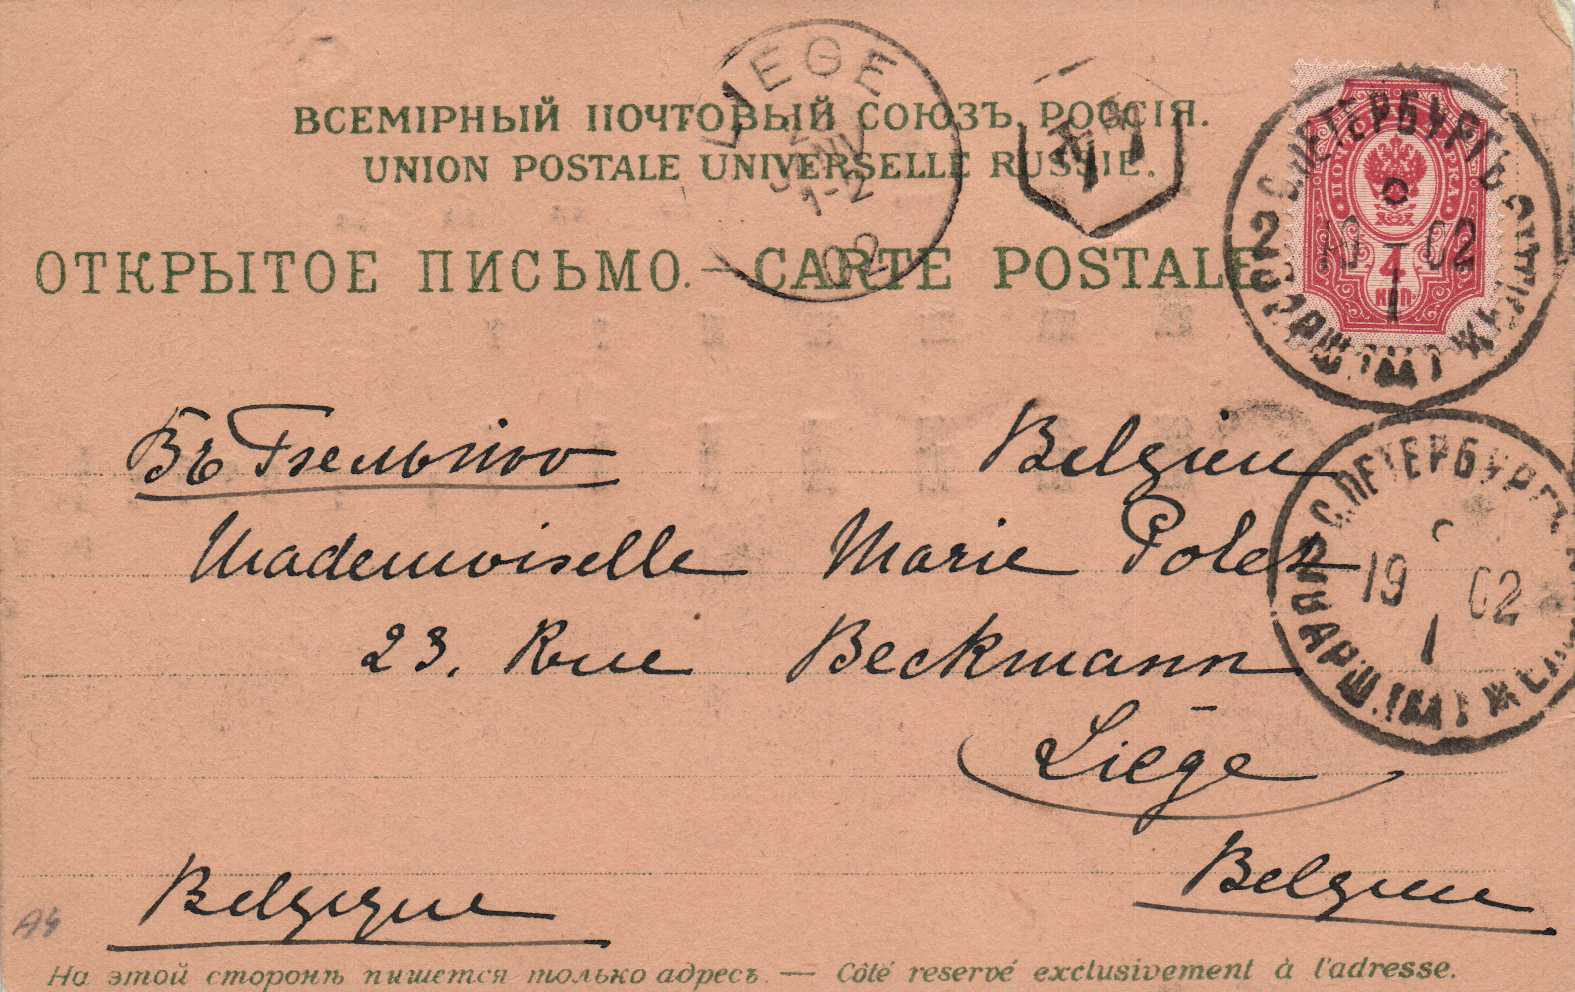 ВСЕМІРНЫЙ ПОЧТОВЫЙ СОЮЗЪ. РОССІЯ.
UNION POSTALE UNIVERSELLE RUSSIE.
ОТКРЫТОЕ ПИСЬМО. — CARTE POSTALE
LIEGE
1-2
02
ПОЧТОВАЯ МАРКА
4
КОП.
С.ПЕТЕРБУРГЪ
2
10 02
1
ВАРШ.
С.ПЕТЕРБУРГЪ
19 02
1
ВАРШ.
Въ Бельгію Belgien
Mademoiselle Marie Polet
23. Rue Beckmann
Liége
Belgique Belgien
A4
На этой сторонѣ пишется только адресъ. — Côté reservé exclusivement à l'adresse.